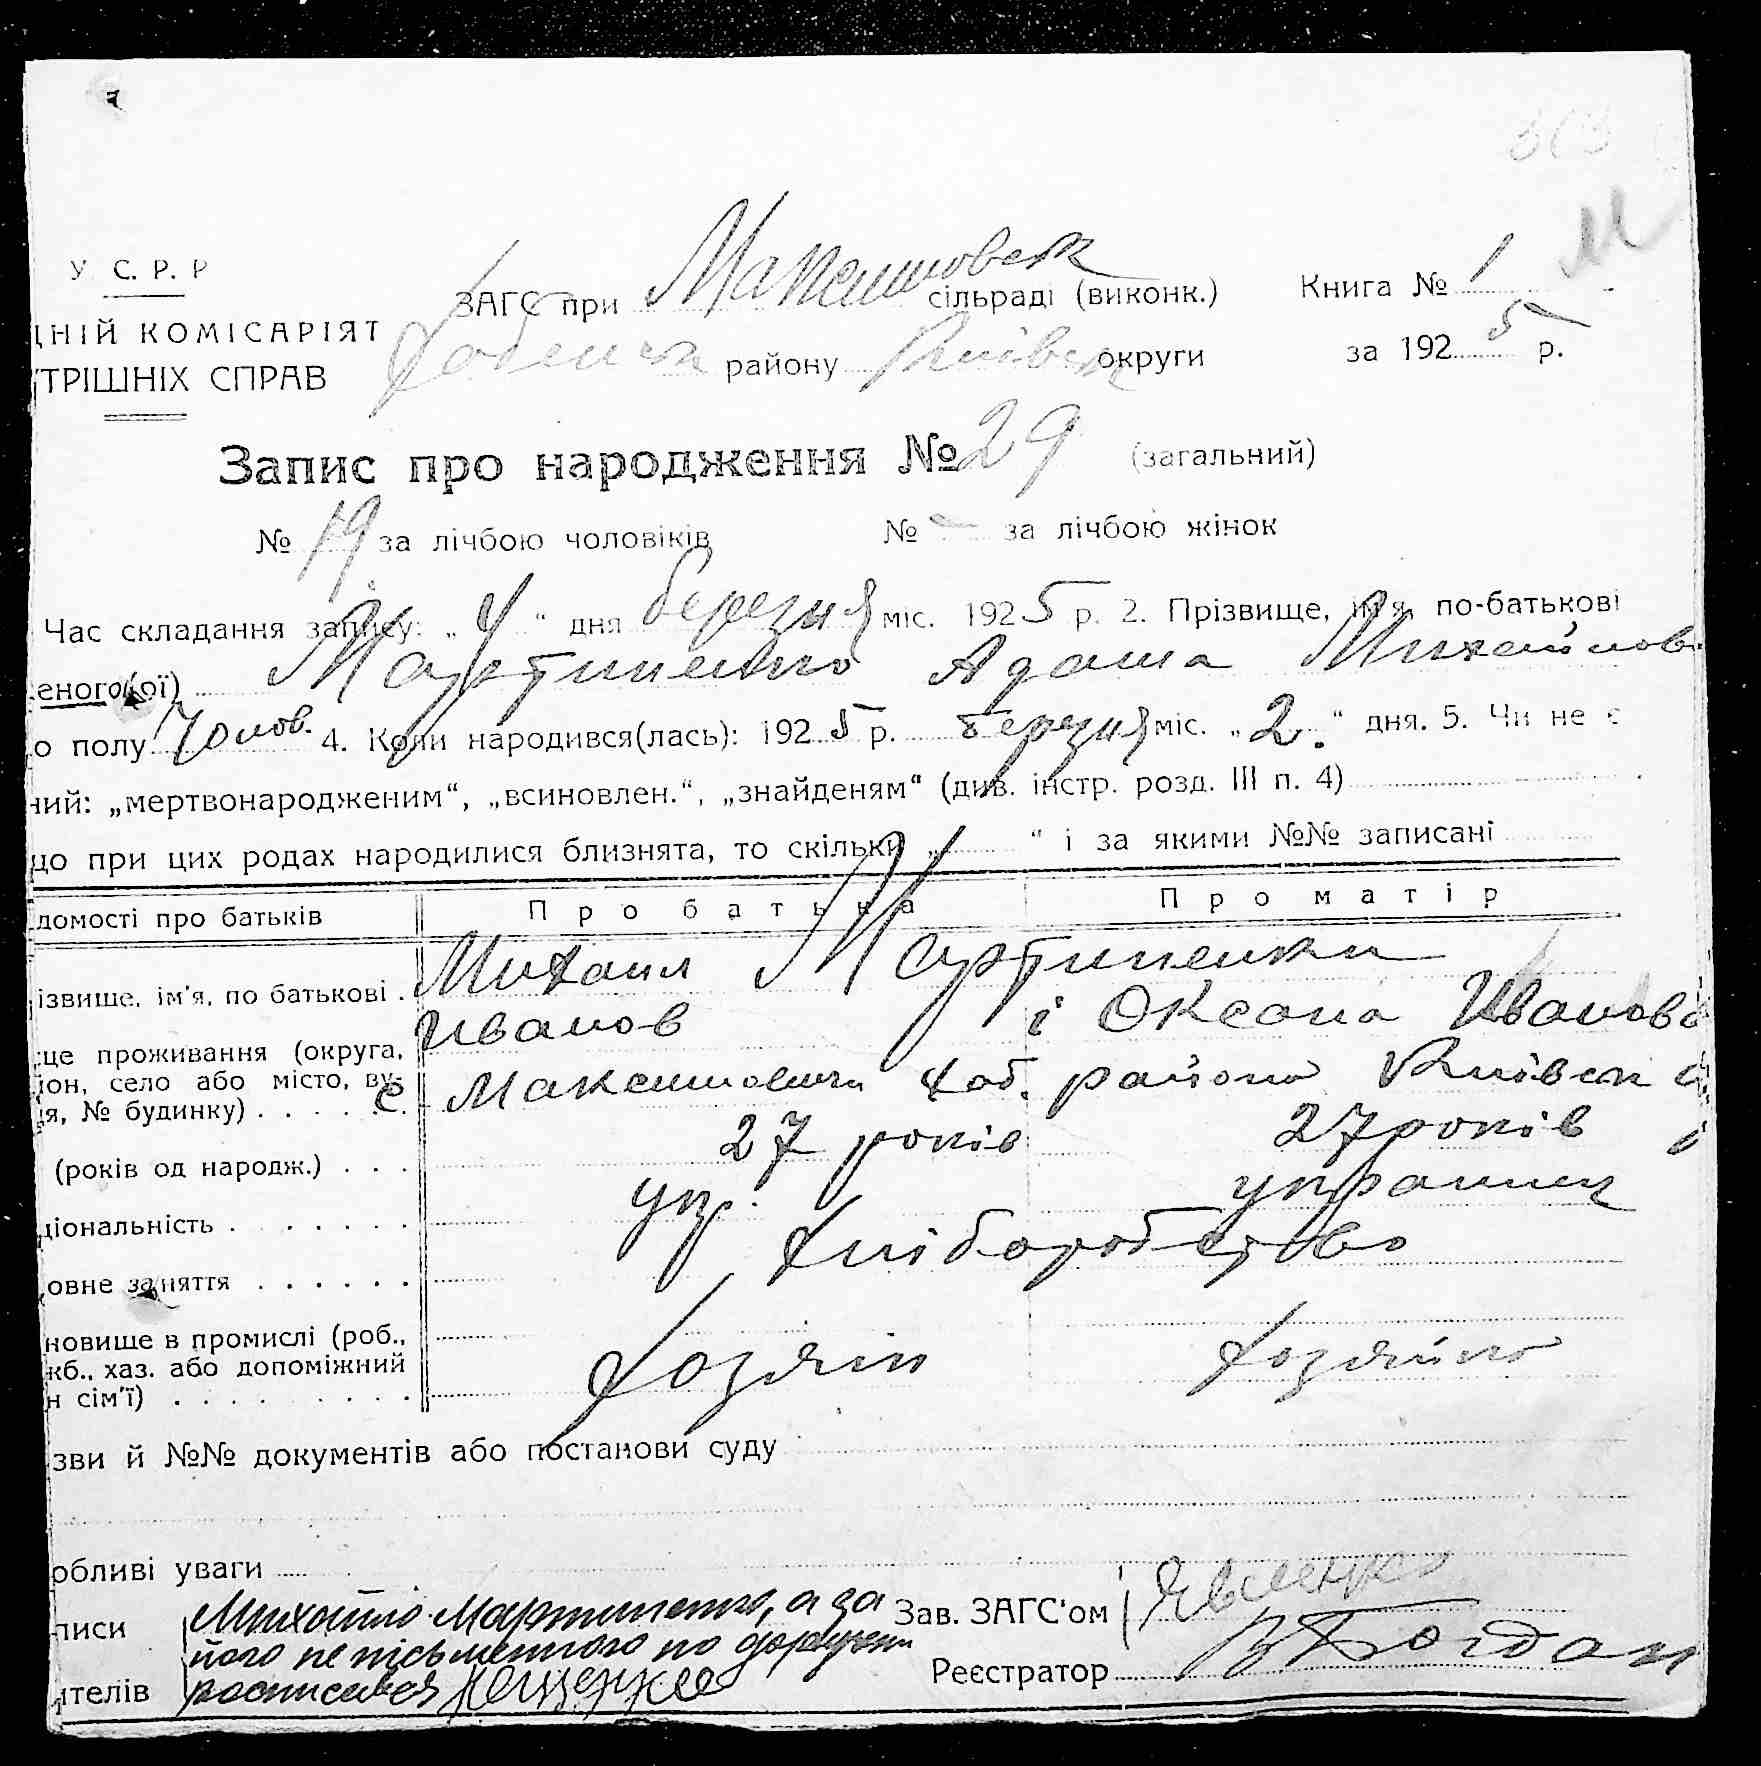 У. С. Р. Р
ЗАГС при Максимовск сільраді (виконк.) Книга № 1
ДНІЙ КОМІСАРІЯТ
ТРІШНІХ СПРАВ
району Київск округи за 1925 р.
Запис про народження № 29 (загальний)
№ 19 за лічбою чоловіків № — за лічбою жінок
Час складання запису: „4“ дня березня міс. 1925 р. 2. Прізвище, ім'я, по-батькові
еного(ої) Мартиненко Адама Михайлов
о полу Чолов. 4. Коли народився(лась): 1925 р. березня міс. „2.“ дня. 5. Чи не є
ний: „мертвонародженим“, „всиновлен.“, „знайденям“ (див. інстр. розд. III п. 4)
що при цих родах народилися близнята, то скільки „ “ і за якими №№ записані
домості про батьків Про батька Про матір
ізвище, ім'я, по батькові . Михаил Мартиненки
Иванов і Оксана Иванова
це проживання (округа,
он, село або місто, ву-
я, № будинку) . . . . . с. Максимовичи Хаб. району Київск
(років од народж.) . . . 27 років 27 років
ціональність . . . . . . . укр. украинк
овне заняття . . . . . . Хліборобство
новище в промислі (роб.,
кб., хаз. або допоміжний
н сім'ї) . . . . . . . . Хозяін Хозяйка
зви й №№ документів або постанови суду
обливі уваги
писи Михайло Мартиненко, а за Зав. ЗАГС'ом
його не письменного по доручен
ителів росписався Реєстратор В Богдан